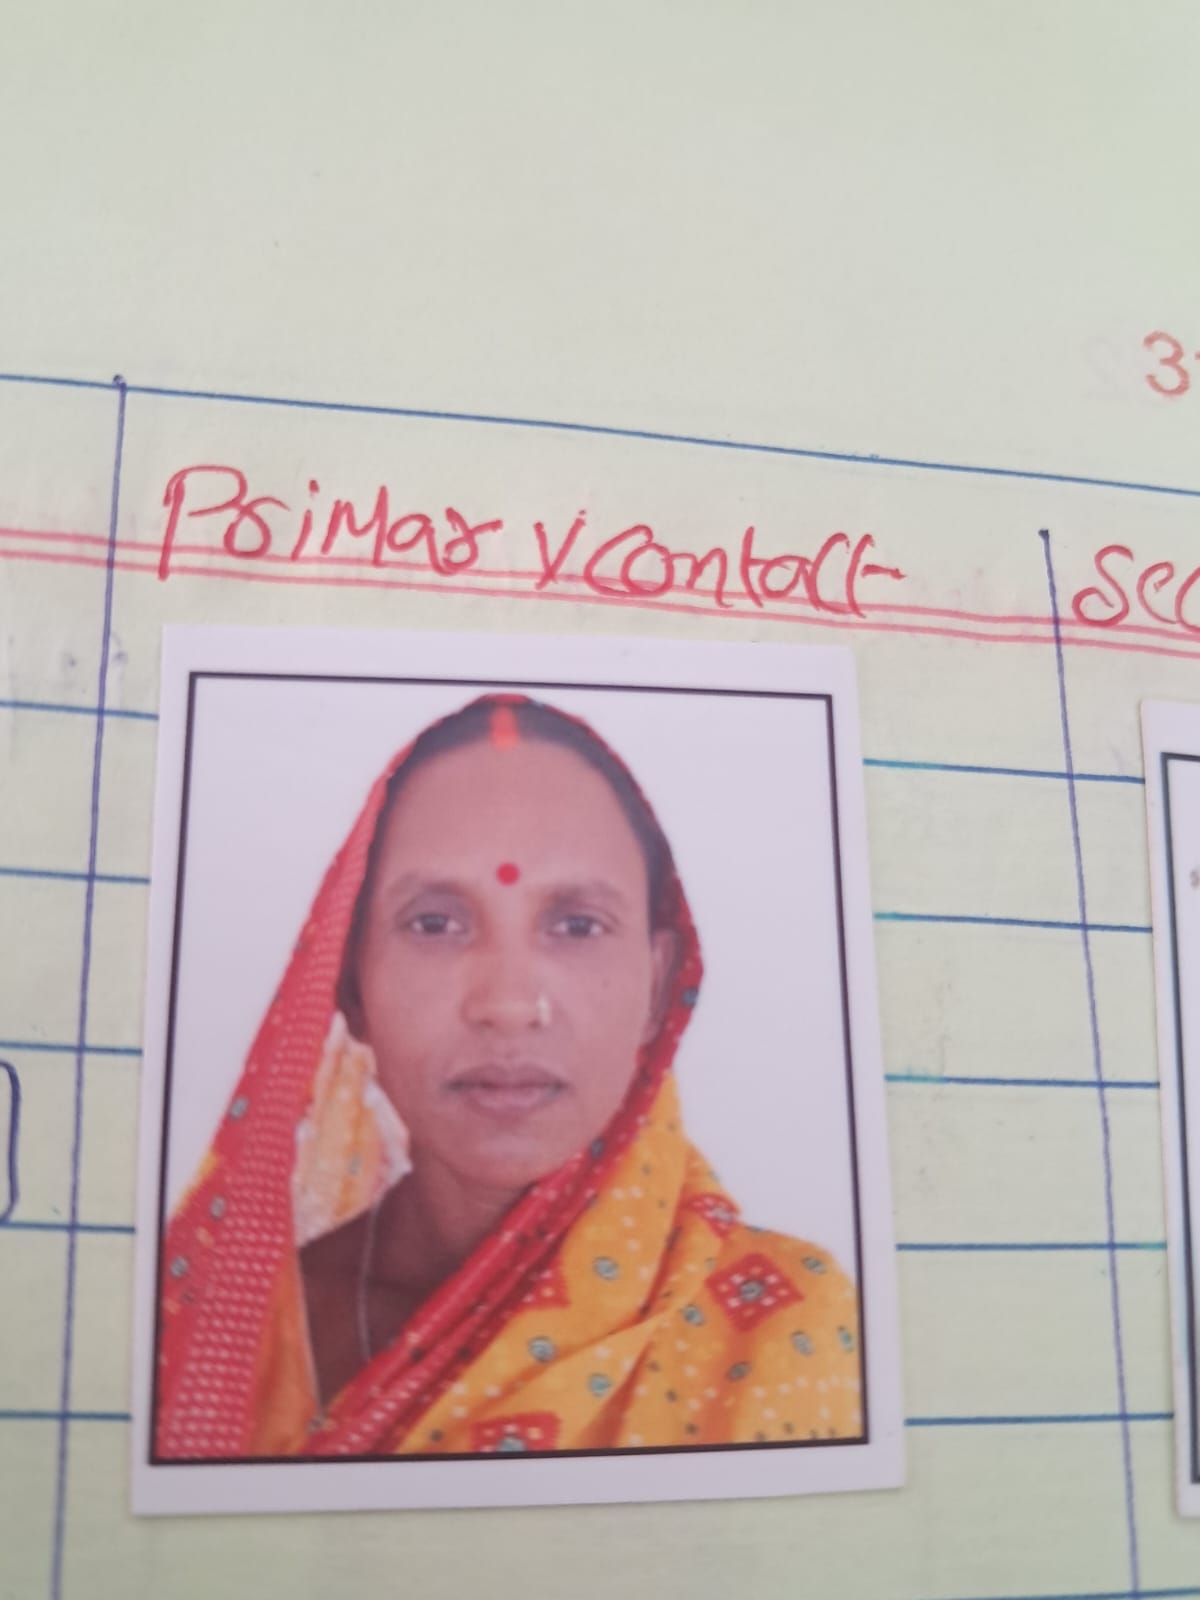 3
Primary contact
Sec